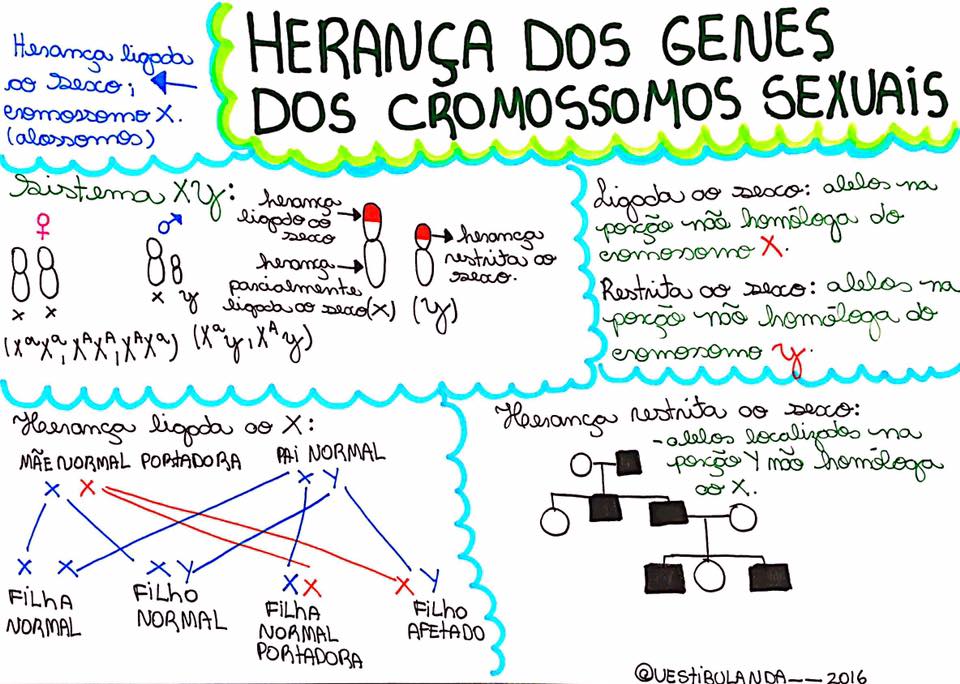 Herança ligada
ao sexo;
cromossomo X.
(alossomos)
HERANÇA DOS GENES
DOS CROMOSSOMOS SEXUAIS
Sistema XY:
♀
♂
X X
X Y
(XᵃXᵃ, XᴬXᴬ, XᴬXᵃ)
(XᵃY, XᴬY)
herança
ligado ao
sexo
herança
parcialmente
ligada ao sexo (X)
herança
restrita ao
sexo.
(Y)
Ligada ao sexo: alelos na
porção não homóloga do
cromosomo X.
Restrita ao sexo: alelos na
porção não homóloga do
cromosomo Y.
Herança ligada ao X:
MÃE NORMAL PORTADORA
PAI NORMAL
X X
X Y
X X
X Y
X X
X Y
FILHA
NORMAL
FILHO
NORMAL
FILHA
NORMAL
PORTADORA
FILHO
AFETADO
Herança restrita ao sexo:
-alelos localizados na
porção Y não homóloga
ao X.
@VESTIBULANDA-- 2016